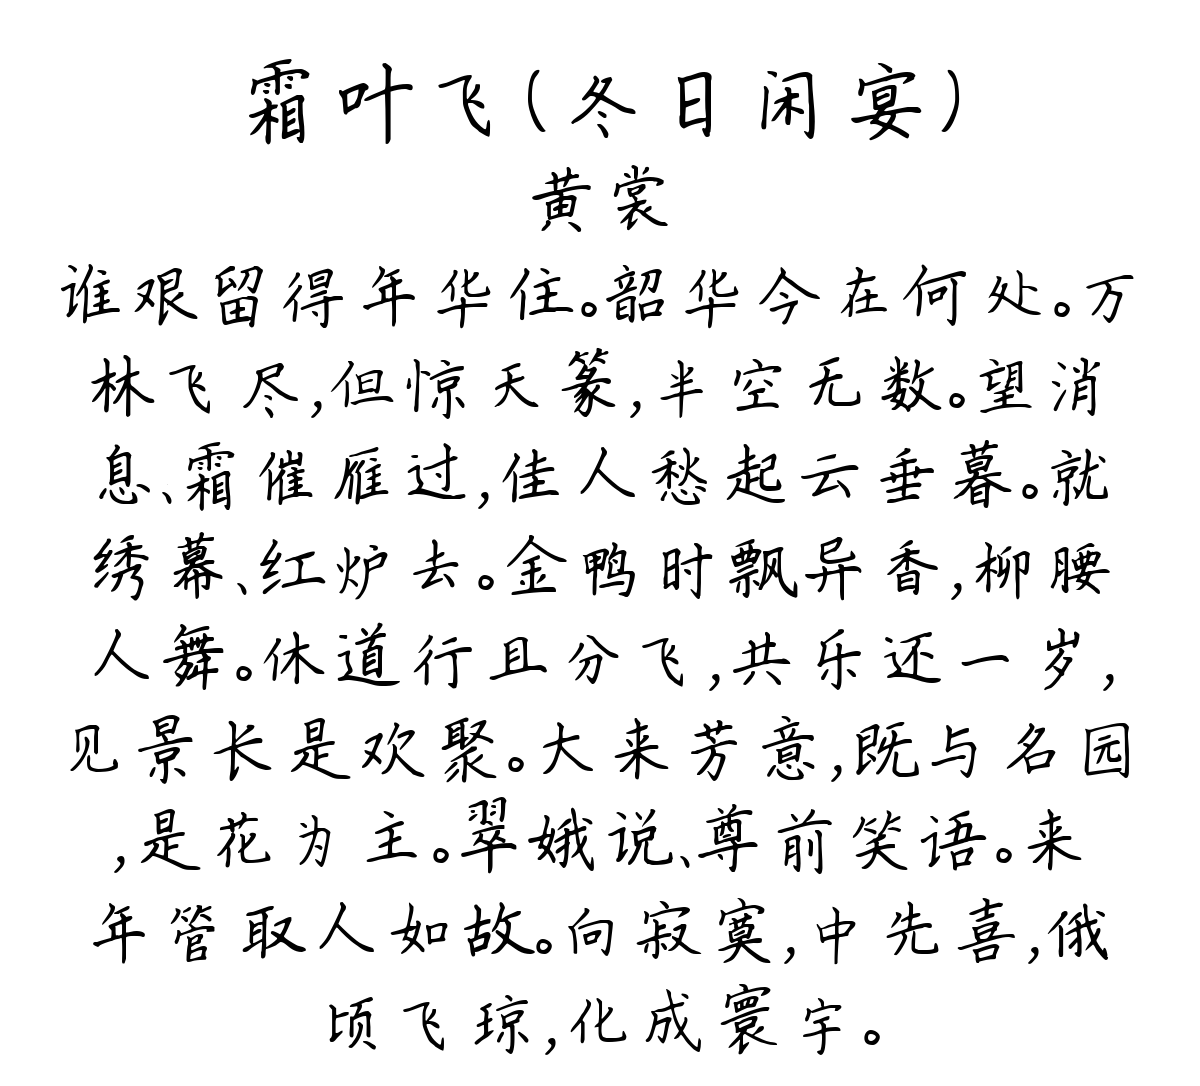 霜叶飞(冬日闲宴)
黄裳
谁艰留得年华住。韶华今在何处。万
林飞尽,但惊天篆,半空无数。望消
息、霜催雁过,佳人愁起云垂暮。就
绣幕、红炉去。金鸭时飘异香,柳腰
人舞。休道行且分飞,共乐还一岁,
见景长是欢聚。大来芳意,既与名园
,是花为主。翠娥说、尊前笑语。来
年管取人如故。向寂寞,中先喜,俄
顷飞琼,化成寰宇。